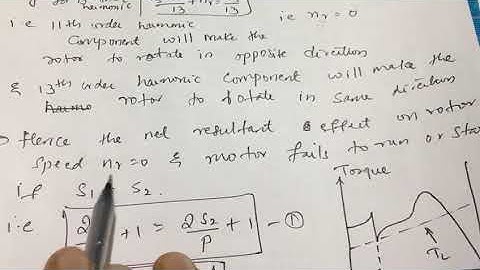 harmonic
13
13
i.e 11th order harmonic i.e nr = 0
Component will make the
rotor to rotate in opposite direction
& 13th order harmonic component will make the
rotor to rotate in same direction
Hence the net resultant effect on rotor
speed nr=0 & motor fails to run or
if S1 S2.
i.e 2 + 1 = 2S2/P + 1 - ①
Torque
TL